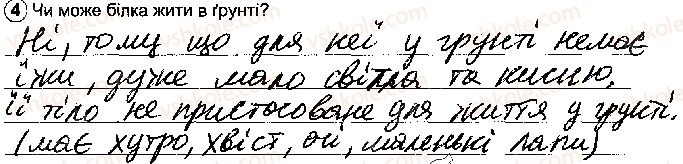 4 Чи може білка жити в ґрунті?
Ні, тому що для неї у грунті немає
їжи, дуже мало світла та кисню,
її тіло не пристосоване для життя у грунті.
(має хутро, хвіст, очі, маленькі лапи)